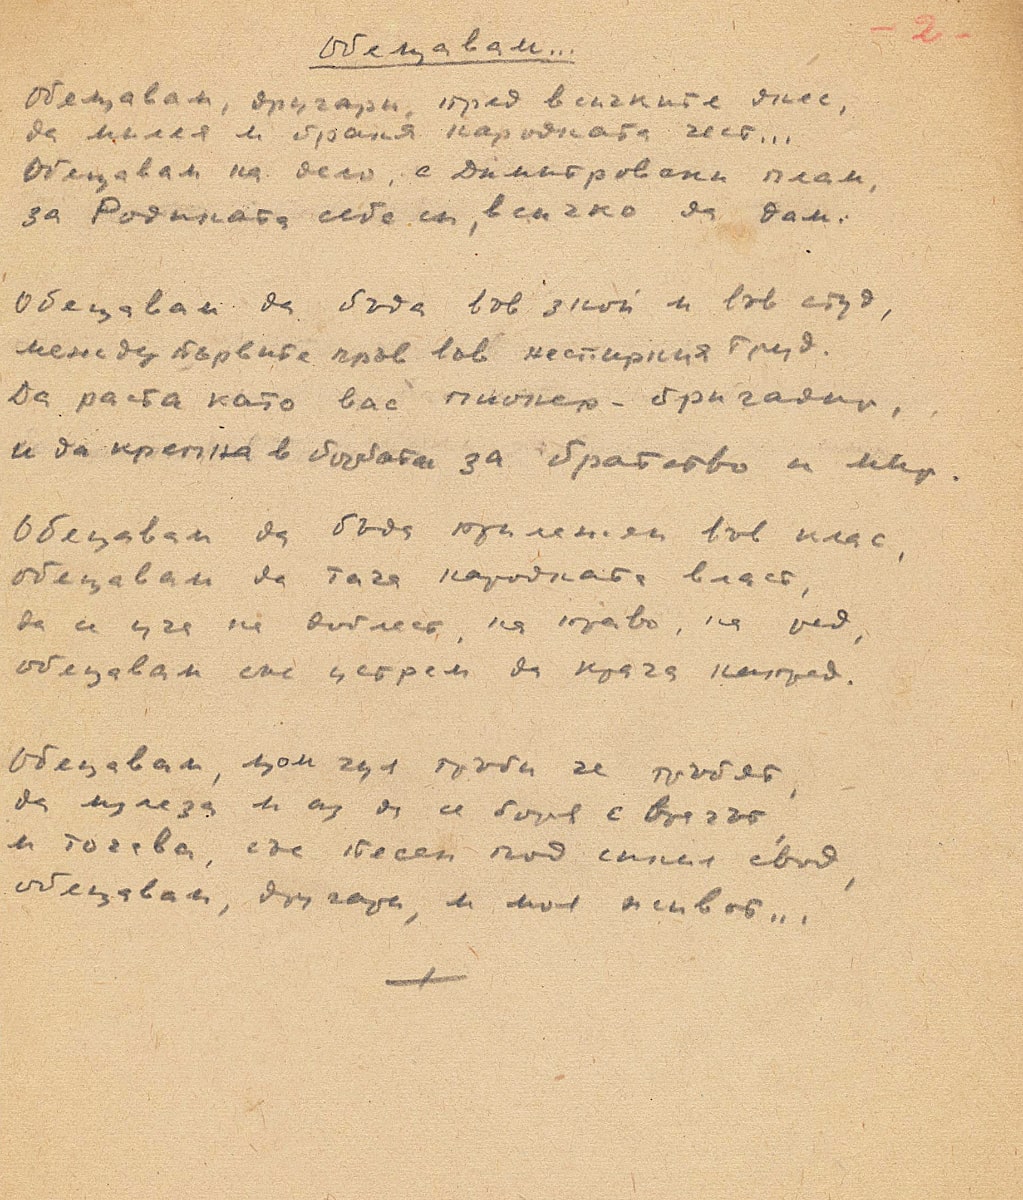 - 2 -
Обещавам...
Обещавам, другари, пред всичките днес,
да милея и браня народната чест...
Обещавам на дело, с Димитровски плам,
за Родината себе си, всичко да дам.
Обещавам да бъда във зной и във студ,
между първите пръв във неспирния труд.
Да раста като вас пионер - бригадир,
и да крепна в борбата за братство и мир.
Обещавам да бъда прилежен във клас,
обещавам да тача народната власт,
да се уча на доблест, на право, на ред,
обещавам със устрем да крача напред.
Обещавам, щом чуя тръби че тръбят,
да изляза и аз да се боря с врагът,
и тогава, със песен под синия свод,
обещавам, другари, и моя живот...